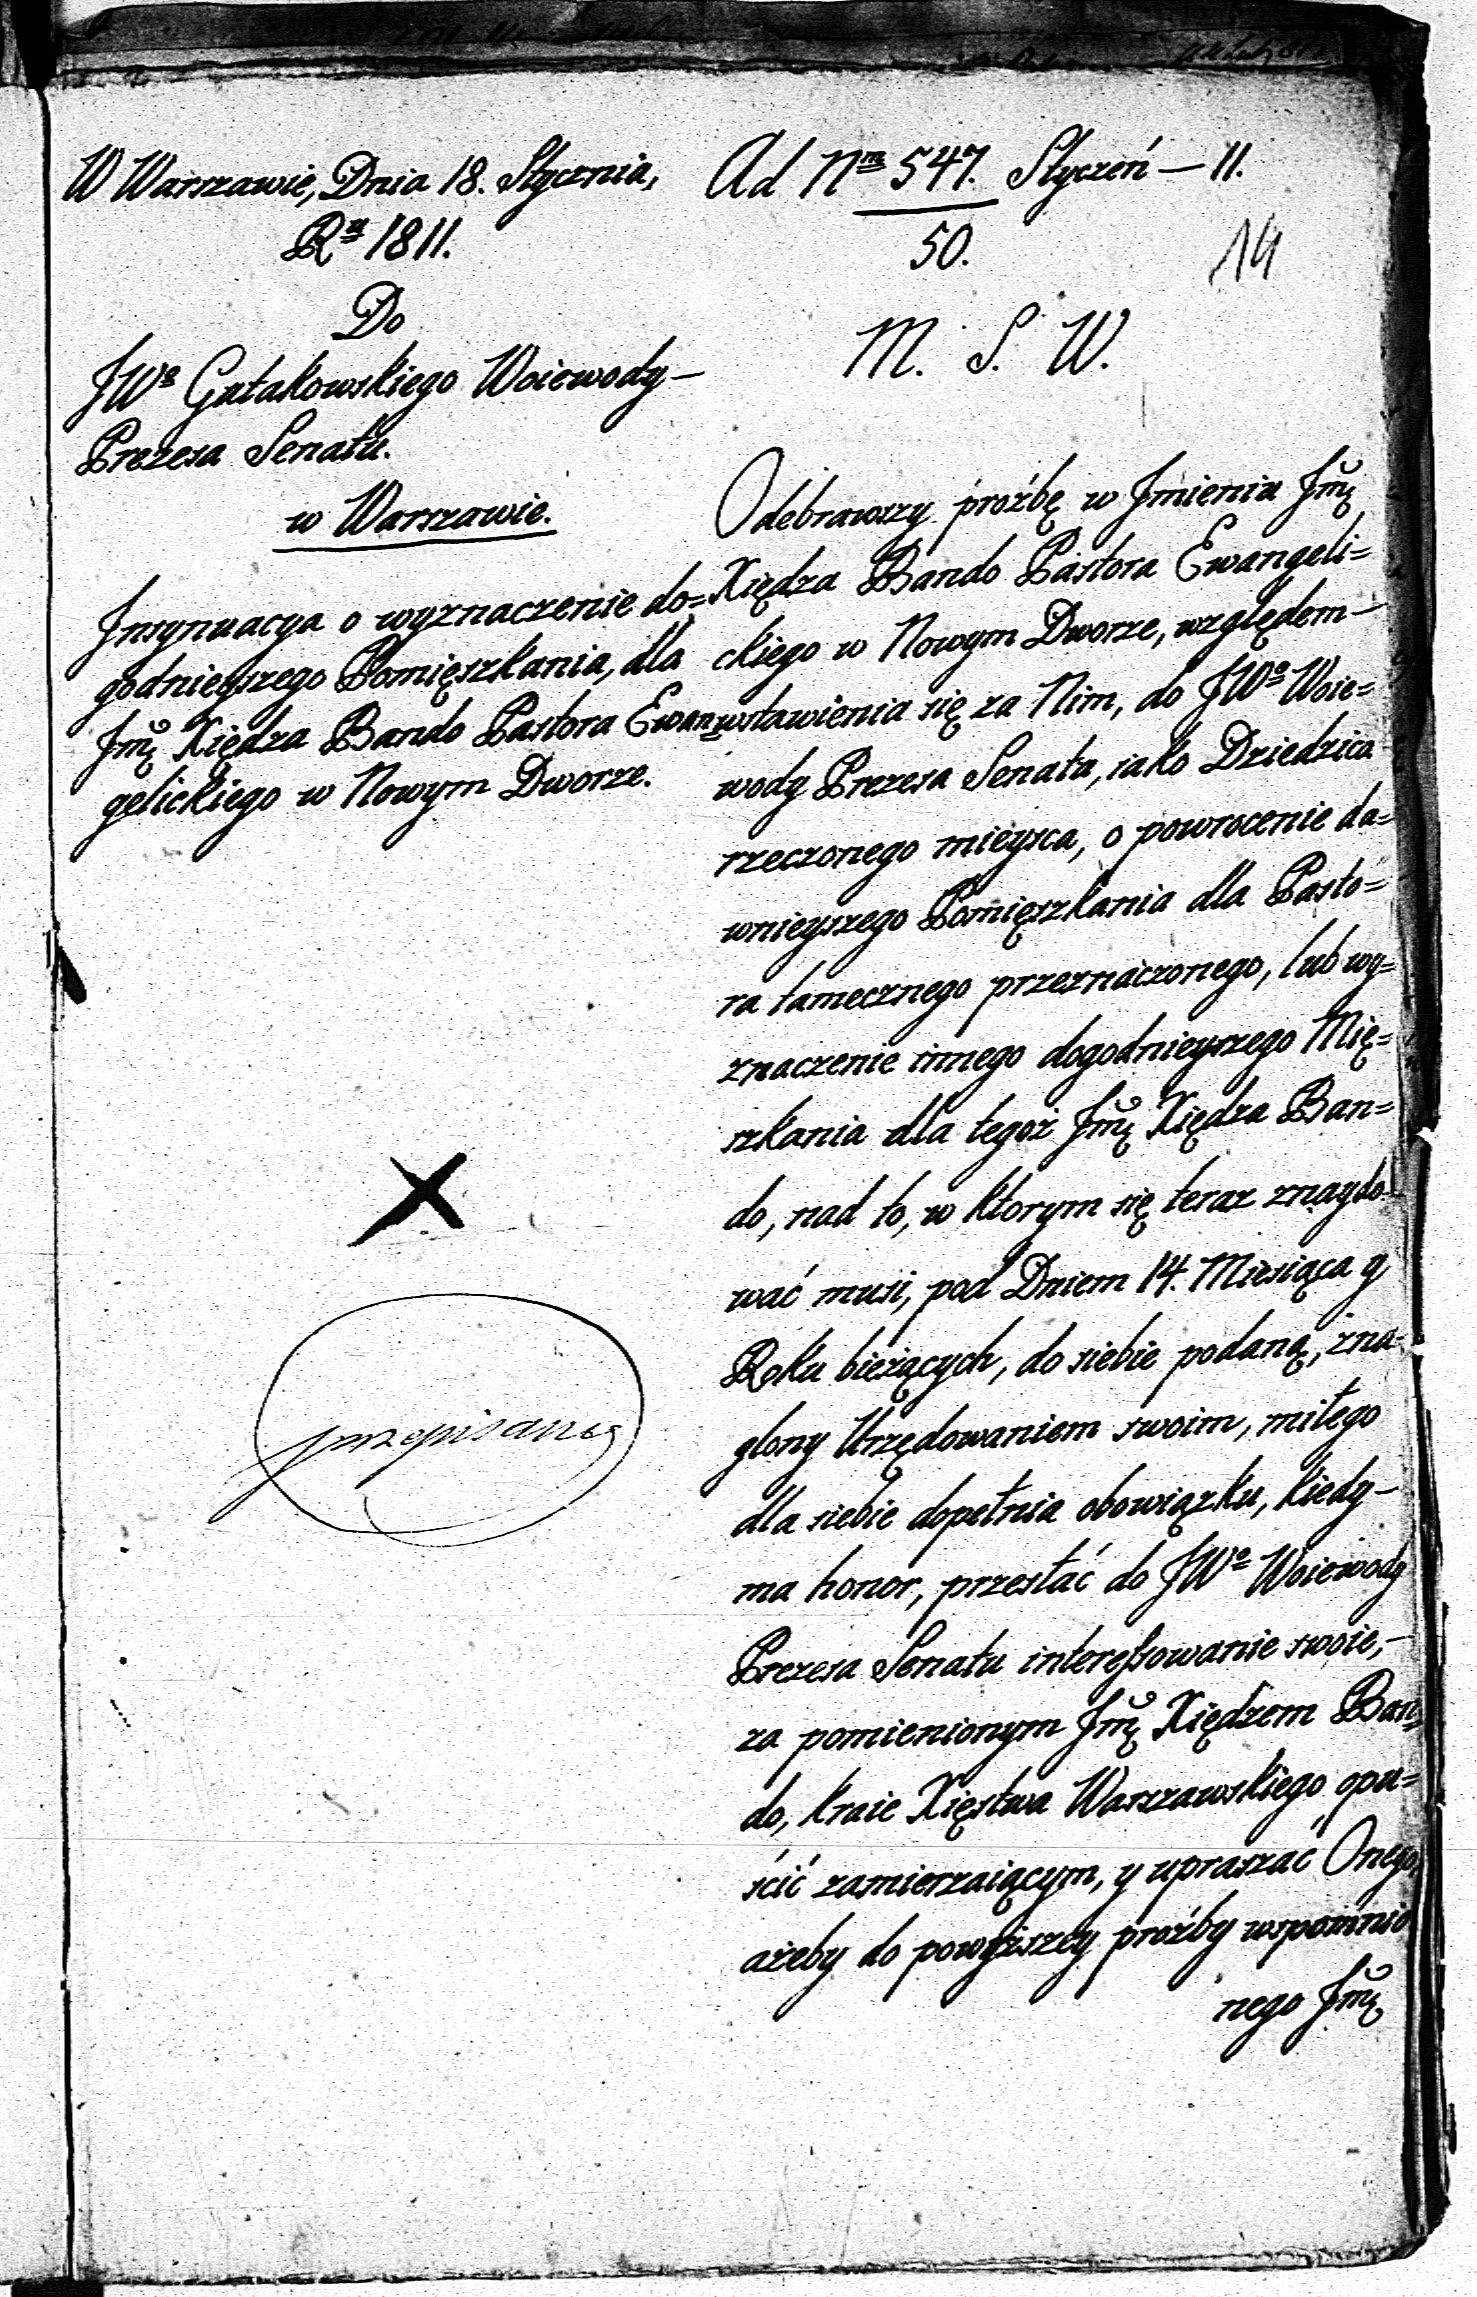 W Warszawie, Dnia 18. Stycznia,
Rᵘ 1811.
Do
JWº Gutakowskiego Woiewody –
Prezesa Senatu.
w Warszawie.
Insynuacya o wyznaczenie do=
godnieyszego Pomięszkania, dla
Jmć Xiędza Bando Pastora Ewan=
gelickiego w Nowym Dworze.
przepisano
Ad Nᵐ 547. Styczeń – 11.
50.
14
M. S. W.
Odebrawszy proźbę w Jmieniu Jmć
Xiędza Bando Pastora Ewangeli=
ckiego w Nowym Dworze, względem –
wstawienia się za Nim, do JWº Woie=
wody Prezesa Senatu, iako Dziedzica
rzeczonego mieysca, o powrocenie da=
wnieyszego Pomięszkania dla Pasto=
ra tamecznego przeznaczonego, lub wy=
znaczenie innego dogodnieyszego Mię=
szkania dla tegoż Jmć Xiędza Ban=
do, nad to, w ktorym się teraz znaydo=
wać musi, pod Dniem 14. Miesiąca y
Roku bieżących, do siebie podaną, zna=
glony Urzędowaniem swoim, miłego
dla siebie dopełnia obowiązku, kiedy –
ma honor, przesłać do JWº Woiewody
Prezesa Senatu interessowanie swoie, –
za pomienionym Jmć Xiędzem Ban=
do, kraie Xięstwa Warszawskiego opu=
ścić zamierzaiącym, y upraszać Onego,
ażeby do powyższey proźby wspomnio
nego Jmć